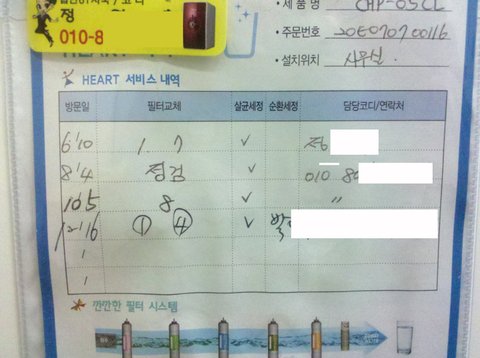 정
010-8
• 제 품 명 CHP-05CL
• 주문번호 20E0707 00116
• 설치위치 사무실
HEART 서비스 내역
방문일 필터교체 살균세정 순환세정 담당코디/연락처
6/10 1 7 ✓ 정
8/4 점검 ✓ 010 80
10/5 8 ✓ 〃
12/16 ① ④ ✓
/
/
깐깐한 필터 시스템